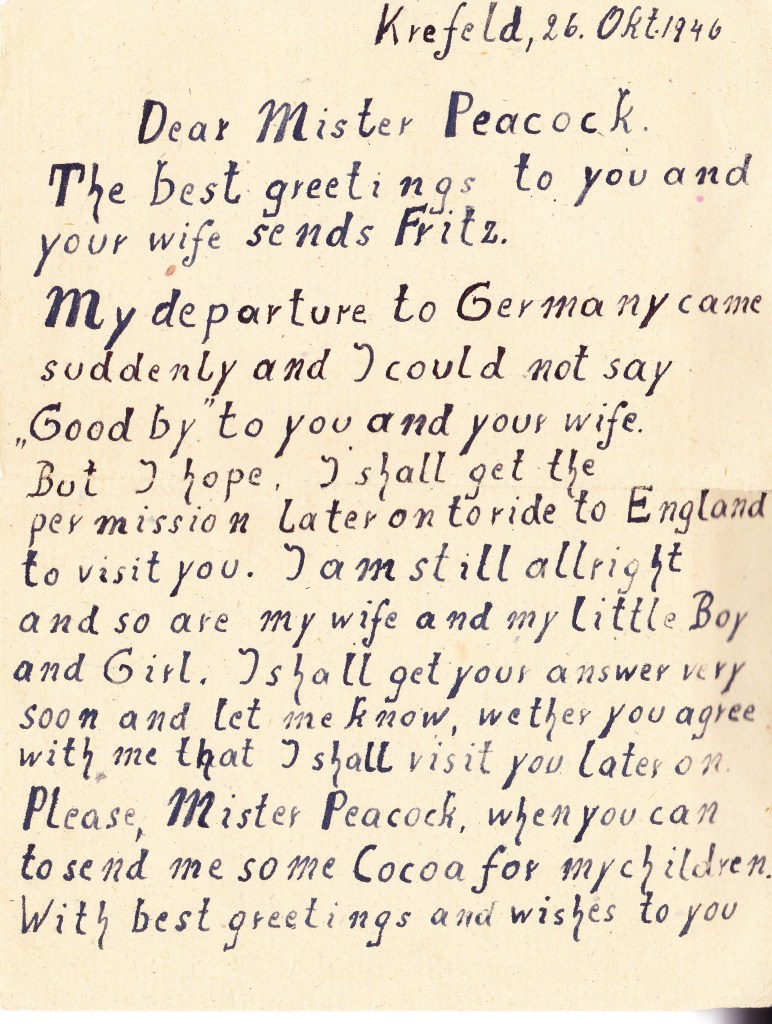 Krefeld, 26. Okt. 1946
Dear Mister Peacock.
The best greetings to you and
your wife sends Fritz.
My departure to Germany came
suddenly and I could not say
„Good by" to you and your wife.
But I hope, I shall get the
permission later on to ride to England
to visit you. I am still allright
and so are my wife and my little Boy
and Girl. I shall get your answer very
soon and let me know, wether you agree
with me that I shall visit you later on.
Please, Mister Peacock, when you can
to send me some Cocoa for my children.
With best greetings and wishes to you